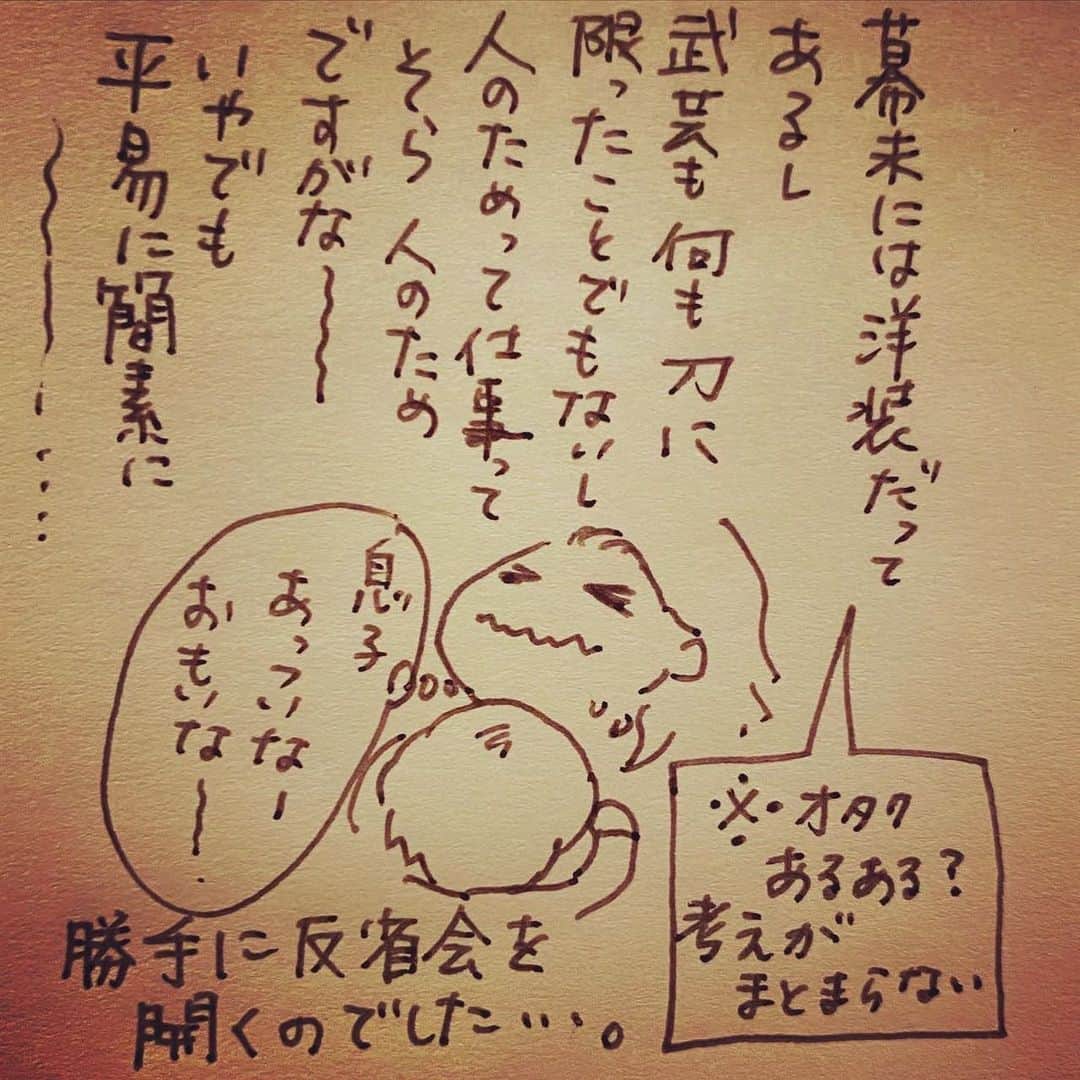 幕末には洋装だって
あるし
武芸も何も刀に
限ったことでもないし
人のためって仕事って
そら人のため
ですがな〜
いやでも
平易に簡素に
〜…
息子
あっついなー
おもいな〜
※オタク
あるある?
考えが
まとまらない
勝手に反省会を
開くのでした…。